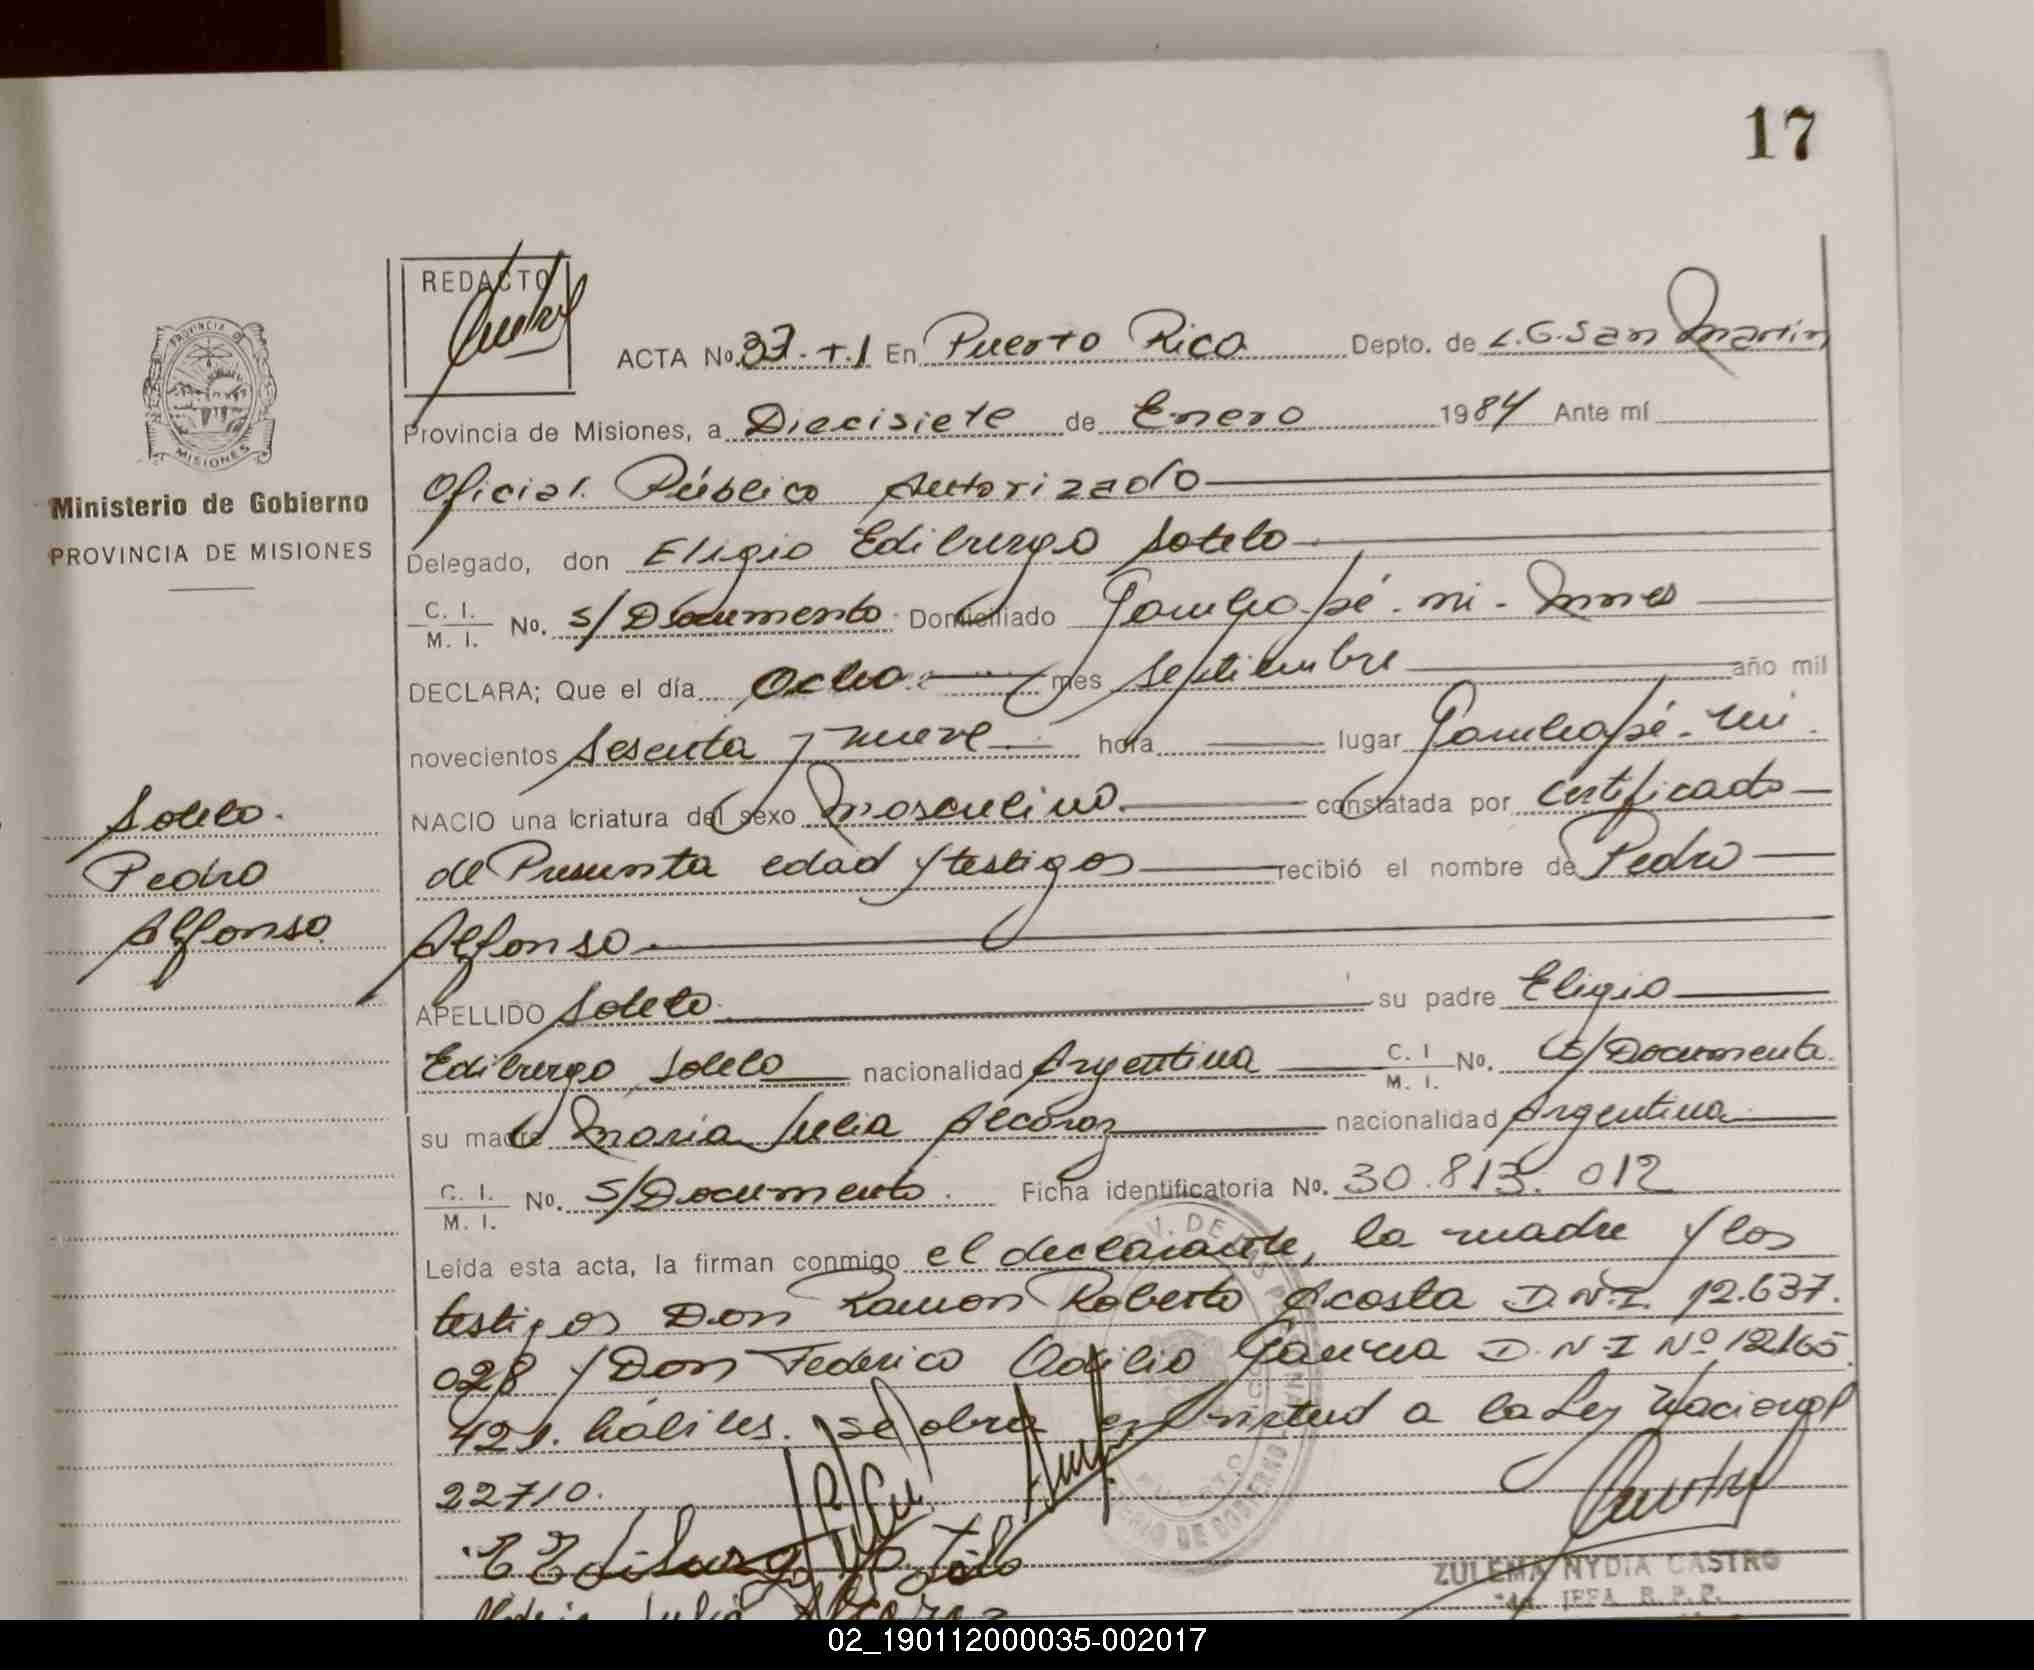 17
REDACTO
ACTA No. 33.-T.1 En Puerto Rico Depto. de L.G.San Martín
Provincia de Misiones, a Diecisiete de Enero 1984 Ante mí
Oficial Público Autorizado
Delegado, don Eligio Ediburgo Sotelo
C. I.
M. I. No. S/Documento Domiciliado
DECLARA; Que el día Ocho mes septiembre año mil
novecientos sesenta y nueve hora lugar
NACIO una criatura del sexo masculino constatada por certificado
de Presunta edad y testigos recibió el nombre de Pedro
Alfonso
APELLIDO Sotelo su padre Eligio
Ediburgo Sotelo nacionalidad Argentina C. I
M. I. No. S/Documento
su madre María Julia Alcaraz nacionalidad Argentina
C. I.
M. I. No. S/Documento. Ficha identificatoria No. 30.813.012
Leída esta acta, la firman conmigo el declarante, la madre y los
testigos Don Ramon Roberto Acosta D.N.I. 12.637.
028 y Don Federico Odilio D.N.I Nº 12165.
421. hábiles. se obra en virtud a la Ley Nacional
22710.
PROVINCIA DE
MISIONES
Ministerio de Gobierno
PROVINCIA DE MISIONES
Sotelo.
Pedro
Alfonso
ZULEMA NYDIA CASTRO
JEFA R.P.P.
02_190112000035-002017